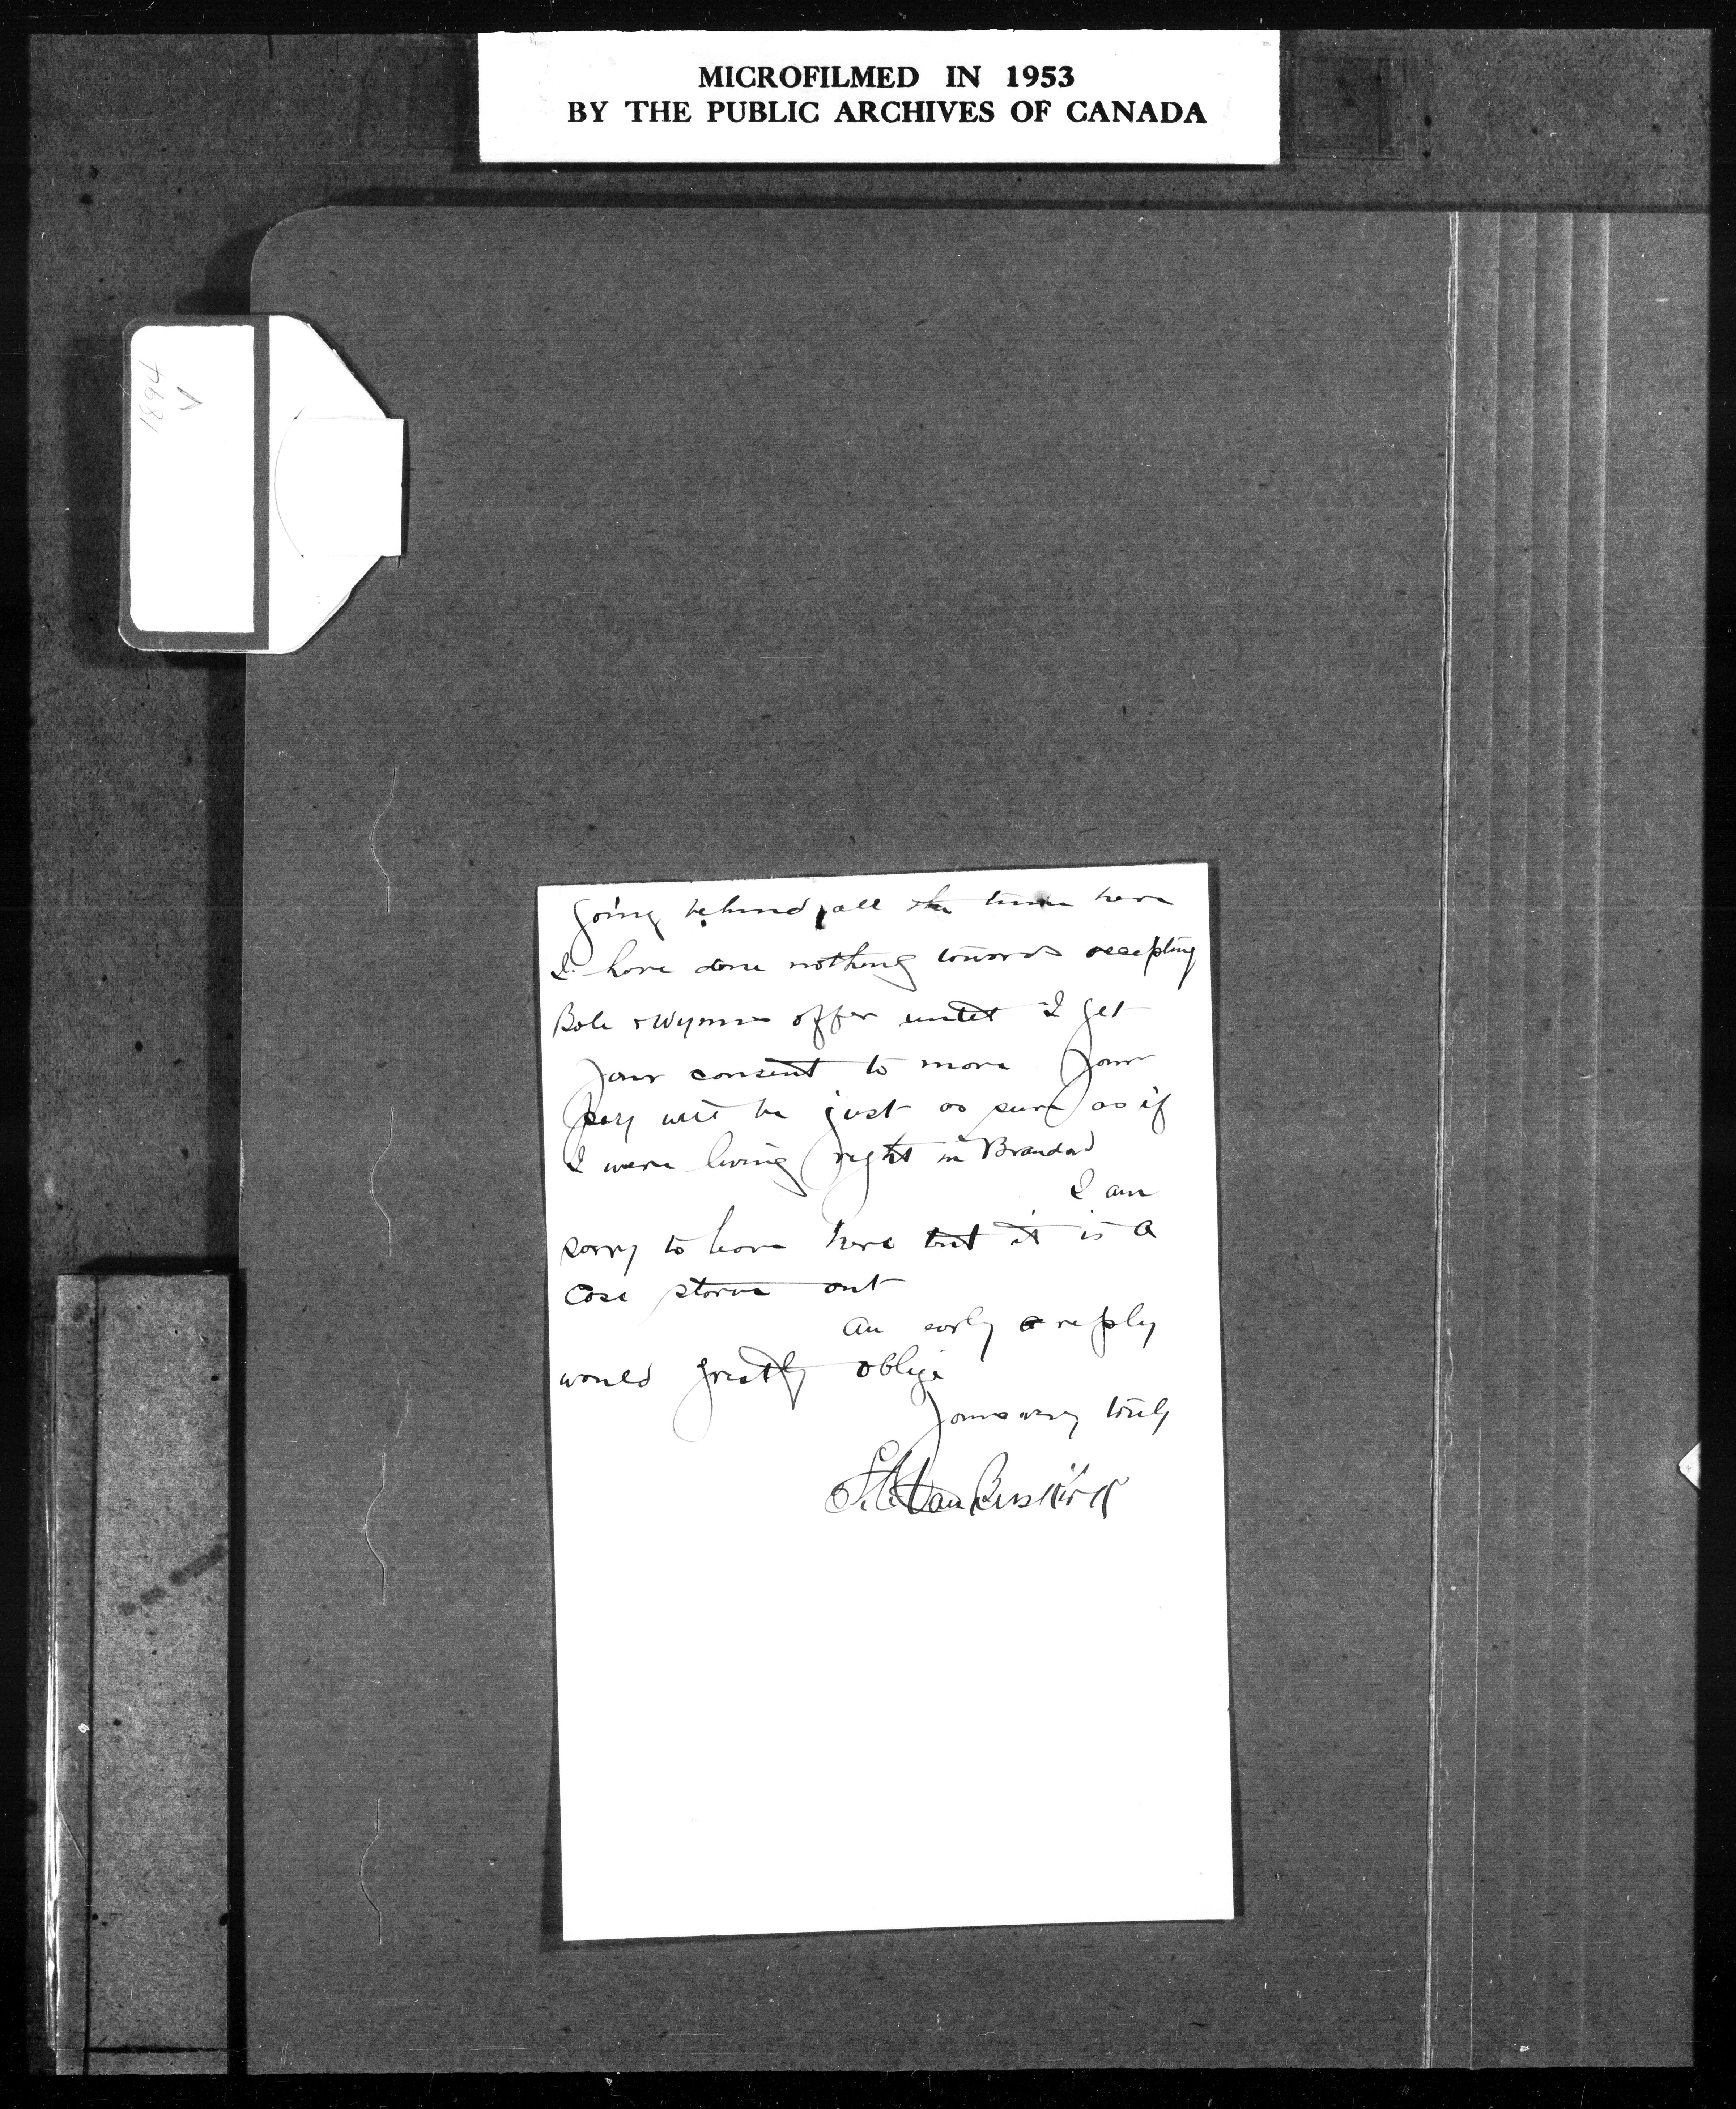 MICROFILMED IN 1953
BY THE PUBLIC ARCHIVES OF CANADA
1894
V
going behind all the time here
I have done nothing towards accepting
Bole & Wynnes offer until I get
your consent to move your
pay will be just as sure as if
I were living right in Brandon
I am
sorry to leave here but it is a
case starve out
An early reply
would greatly oblige
Yours very truly
Van Buskirk